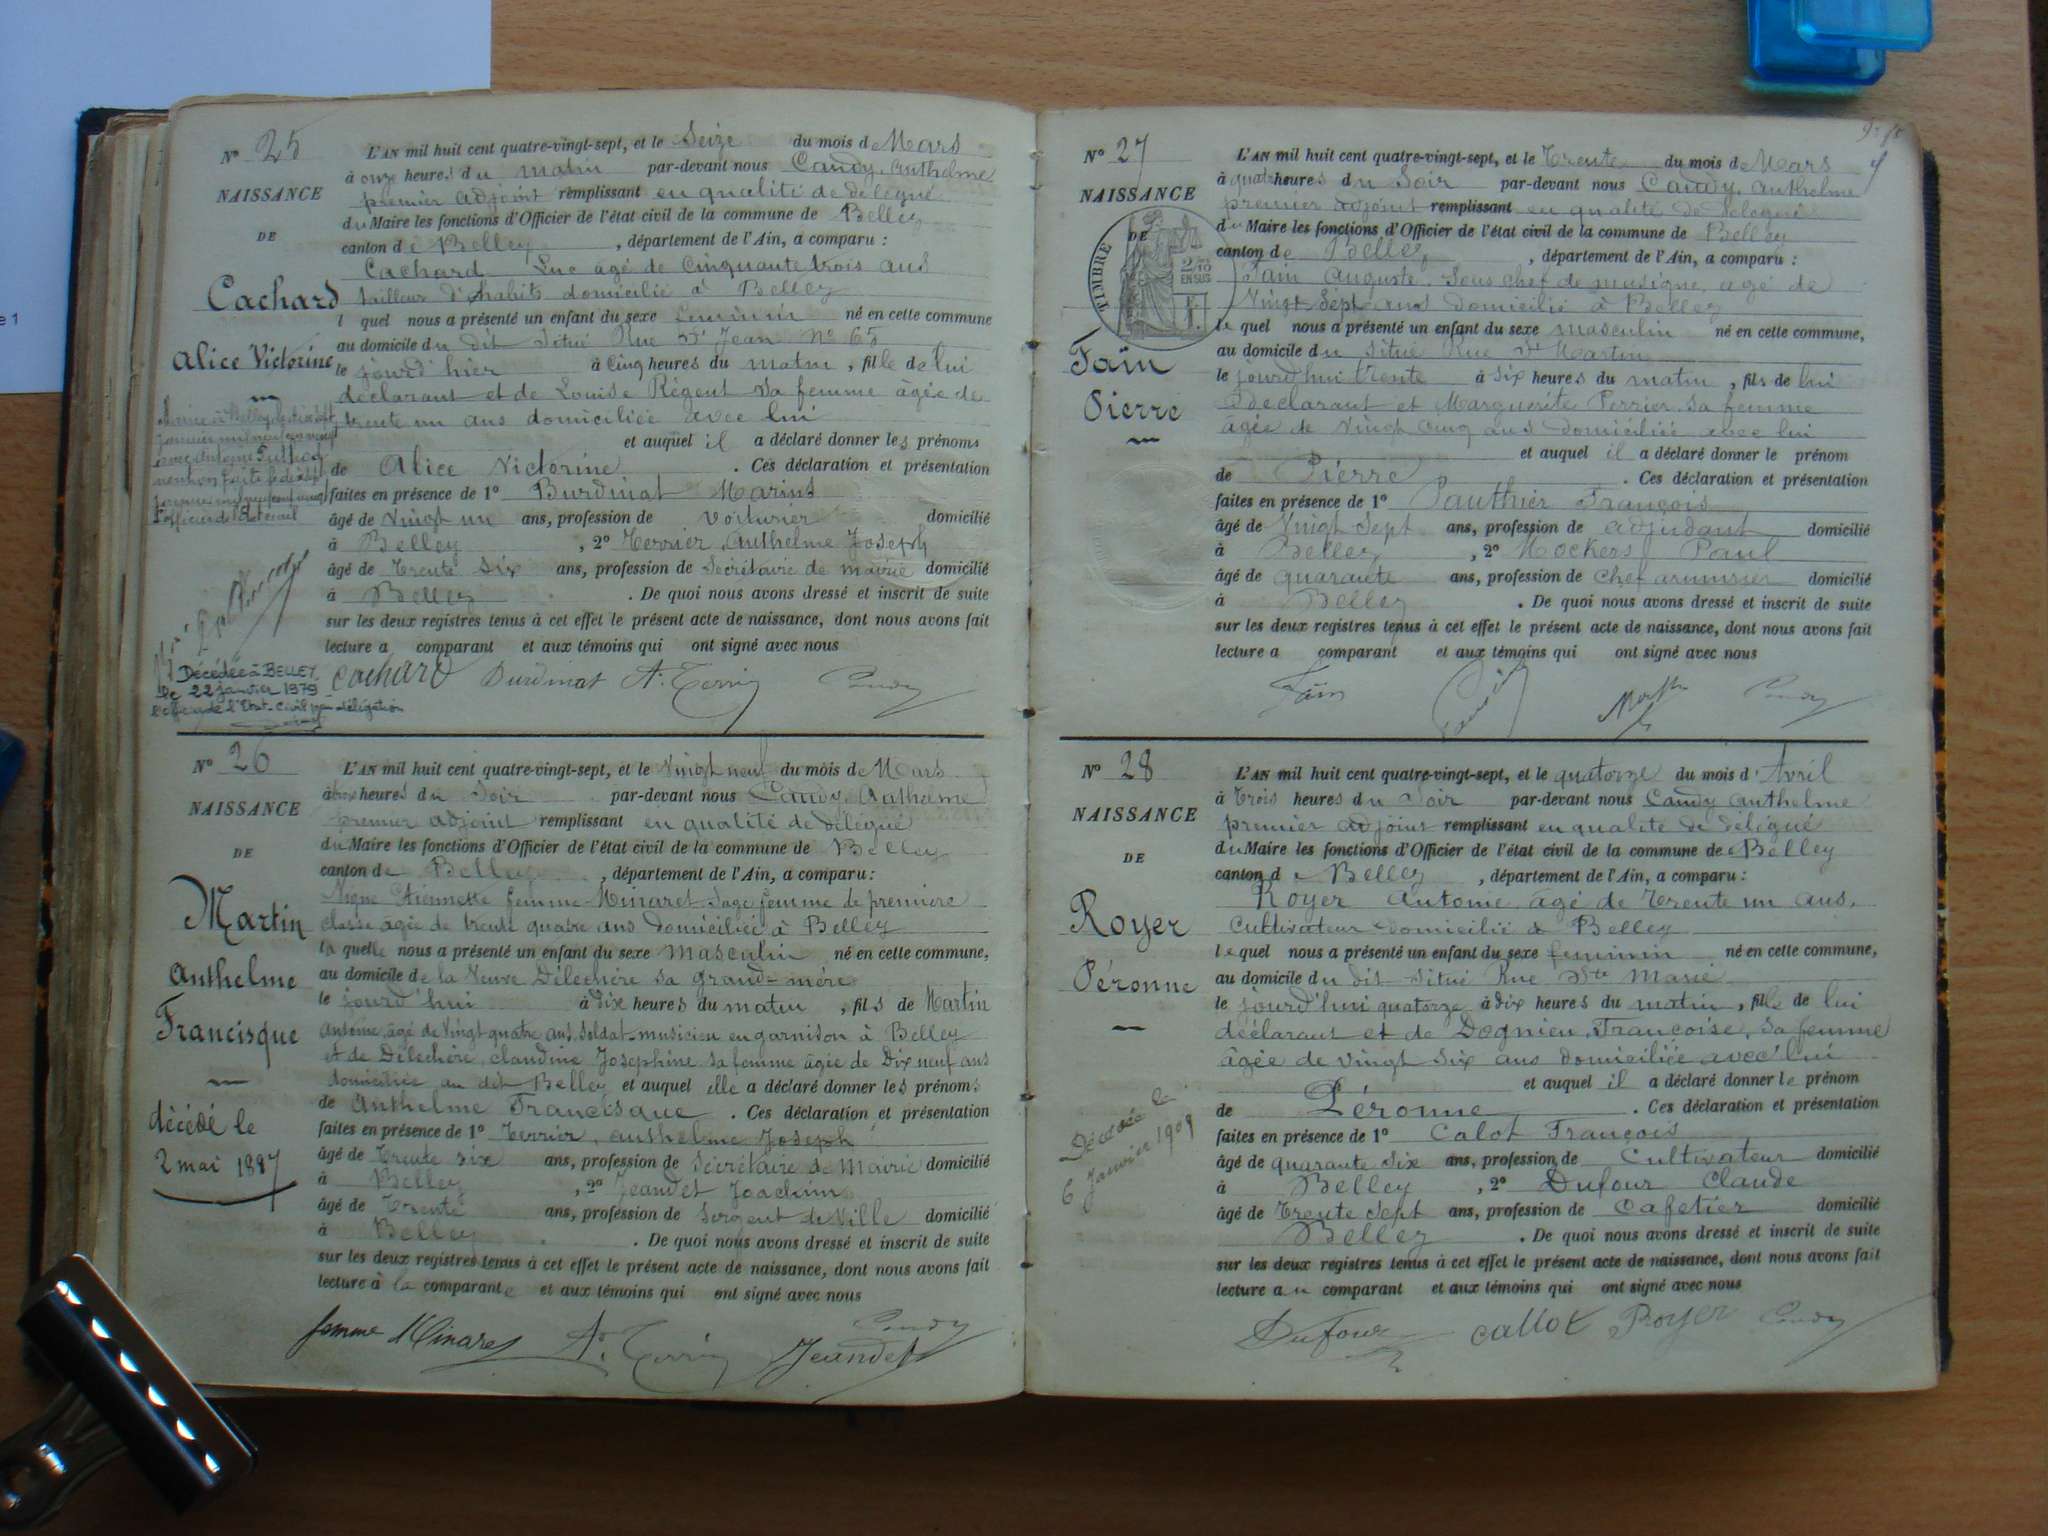 N° 25
NAISSANCE
DE
Cachard
Alice Victorine
Décédée à BELLEY
le 22 janvier 1979
L'AN mil huit cent quatre-vingt-sept, et le Seize du mois de Mars
à onze heures du matin par-devant nous Candy, Anthelme
premier adjoint remplissant en qualité de délégué
du Maire les fonctions d'Officier de l'état civil de la commune de Belley
canton de Belley, département de l'Ain, a comparu :
Cachard Luc âgé de Cinquante trois ans
tailleur d'habits domicilié à Belley
l quel nous a présenté un enfant du sexe féminin né en cette commune
au domicile du dit situé Rue St Jean N° 65
le jourd'hier à Cinq heures du matin, fille de lui
déclarant et de Louise Régent sa femme âgée de
trente un ans domiciliée avec lui
et auquel il a déclaré donner les prénoms
de Alice Victorine. Ces déclaration et présentation
faites en présence de 1° Burdinat Marius
âgé de Vingt un ans, profession de voiturier domicilié
à Belley, 2° Terrier, Anthelme Joseph
âgé de Trente Six ans, profession de Secrétaire de mairie domicilié
à Belley. De quoi nous avons dressé et inscrit de suite
sur les deux registres tenus à cet effet le présent acte de naissance, dont nous avons fait
lecture a comparant et aux témoins qui ont signé avec nous
Cachard Burdinat A. Terrier Candy
N° 26
NAISSANCE
DE
Martin
Anthelme
Francisque
décédé le
2 mai 1887
L'AN mil huit cent quatre-vingt-sept, et le Vingt neuf du mois de Mars
heures du Soir par-devant nous Candy, Anthelme
premier adjoint remplissant en qualité de délégué
du Maire les fonctions d'Officier de l'état civil de la commune de Belley
canton de Belley, département de l'Ain, a comparu :
Nigue Etiennette femme Minaret Sage femme de première
classe âgée de trente quatre ans domiciliée à Belley
la quelle nous a présenté un enfant du sexe masculin né en cette commune,
au domicile de la Veuve Délechère sa grand-mère
le jourd'hui à dix heures du matin, fils de Martin
Antoine, âgé de Vingt quatre ans, Soldat musicien en garnison à Belley
et de Délechère, Claudine Josephine sa femme âgée de Dix neuf ans
domiciliée au dit Belley et auquel elle a déclaré donner les prénoms
de Anthelme Francisque. Ces déclaration et présentation
faites en présence de 1° Terrier, Anthelme Joseph
âgé de Trente six ans, profession de Secrétaire de Mairie domicilié
à Belley, 2° Jeandet Joachim
âgé de Trente ans, profession de Sergent de Ville domicilié
à Belley. De quoi nous avons dressé et inscrit de suite
sur les deux registres tenus à cet effet le présent acte de naissance, dont nous avons fait
lecture à la comparante et aux témoins qui ont signé avec nous
femme Minaret A. Terrier Jeandet Candy
N° 27
NAISSANCE
DE
TIMBRE
2/10 EN SUS
Fain
Pierre
L'AN mil huit cent quatre-vingt-sept, et le Trente du mois de Mars
à quatre heures du Soir par-devant nous Candy, Anthelme
premier adjoint remplissant en qualité de délégué
du Maire les fonctions d'Officier de l'état civil de la commune de Belley
canton de Belley, département de l'Ain, a comparu :
Fain Auguste, Sous chef de musique, âgé de
Vingt Sept ans domicilié à Belley
le quel nous a présenté un enfant du sexe masculin né en cette commune,
au domicile du situé Rue St Martin
le jourd'hui trente à six heures du matin, fils de lui
Déclarant et Marguerite Perrier sa femme
âgée de Vingt cinq ans domiciliée avec lui
et auquel il a déclaré donner le prénom
de Pierre. Ces déclaration et présentation
faites en présence de 1° Pauthier François
âgé de Vingt Sept ans, profession de adjudant domicilié
à Belley, 2° Mockers Paul
âgé de quarante ans, profession de chef armurier domicilié
à Belley. De quoi nous avons dressé et inscrit de suite
sur les deux registres tenus à cet effet le présent acte de naissance, dont nous avons fait
lecture a comparant et aux témoins qui ont signé avec nous
Fain Candy
N° 28
NAISSANCE
DE
Royer
Péronne
Décédée le
6 Janvier 1909
L'AN mil huit cent quatre-vingt-sept, et le quatorze du mois d'Avril
à Trois heures du Soir par-devant nous Candy Anthelme
premier adjoint remplissant en qualité de délégué
du Maire les fonctions d'Officier de l'état civil de la commune de Belley
canton de Belley, département de l'Ain, a comparu :
Royer Antoine, âgé de Trente un ans,
Cultivateur domicilié à Belley
lequel nous a présenté un enfant du sexe féminin né en cette commune,
au domicile du dit situé Rue Ste Marie
le jourd'hui quatorze à dix heures du matin, fille de lui
déclarant et de Dognieu, Françoise, sa femme
âgée de vingt six ans domiciliée avec lui
et auquel il a déclaré donner le prénom
de Péronne. Ces déclaration et présentation
faites en présence de 1° Calot François
âgé de quarante six ans, profession de Cultivateur domicilié
à Belley, 2° Dufour Claude
âgé de Trente Sept ans, profession de Cafetier domicilié
Belley. De quoi nous avons dressé et inscrit de suite
sur les deux registres tenus à cet effet le présent acte de naissance, dont nous avons fait
lecture au comparant et aux témoins qui ont signé avec nous
Dufour Callot Royer Candy